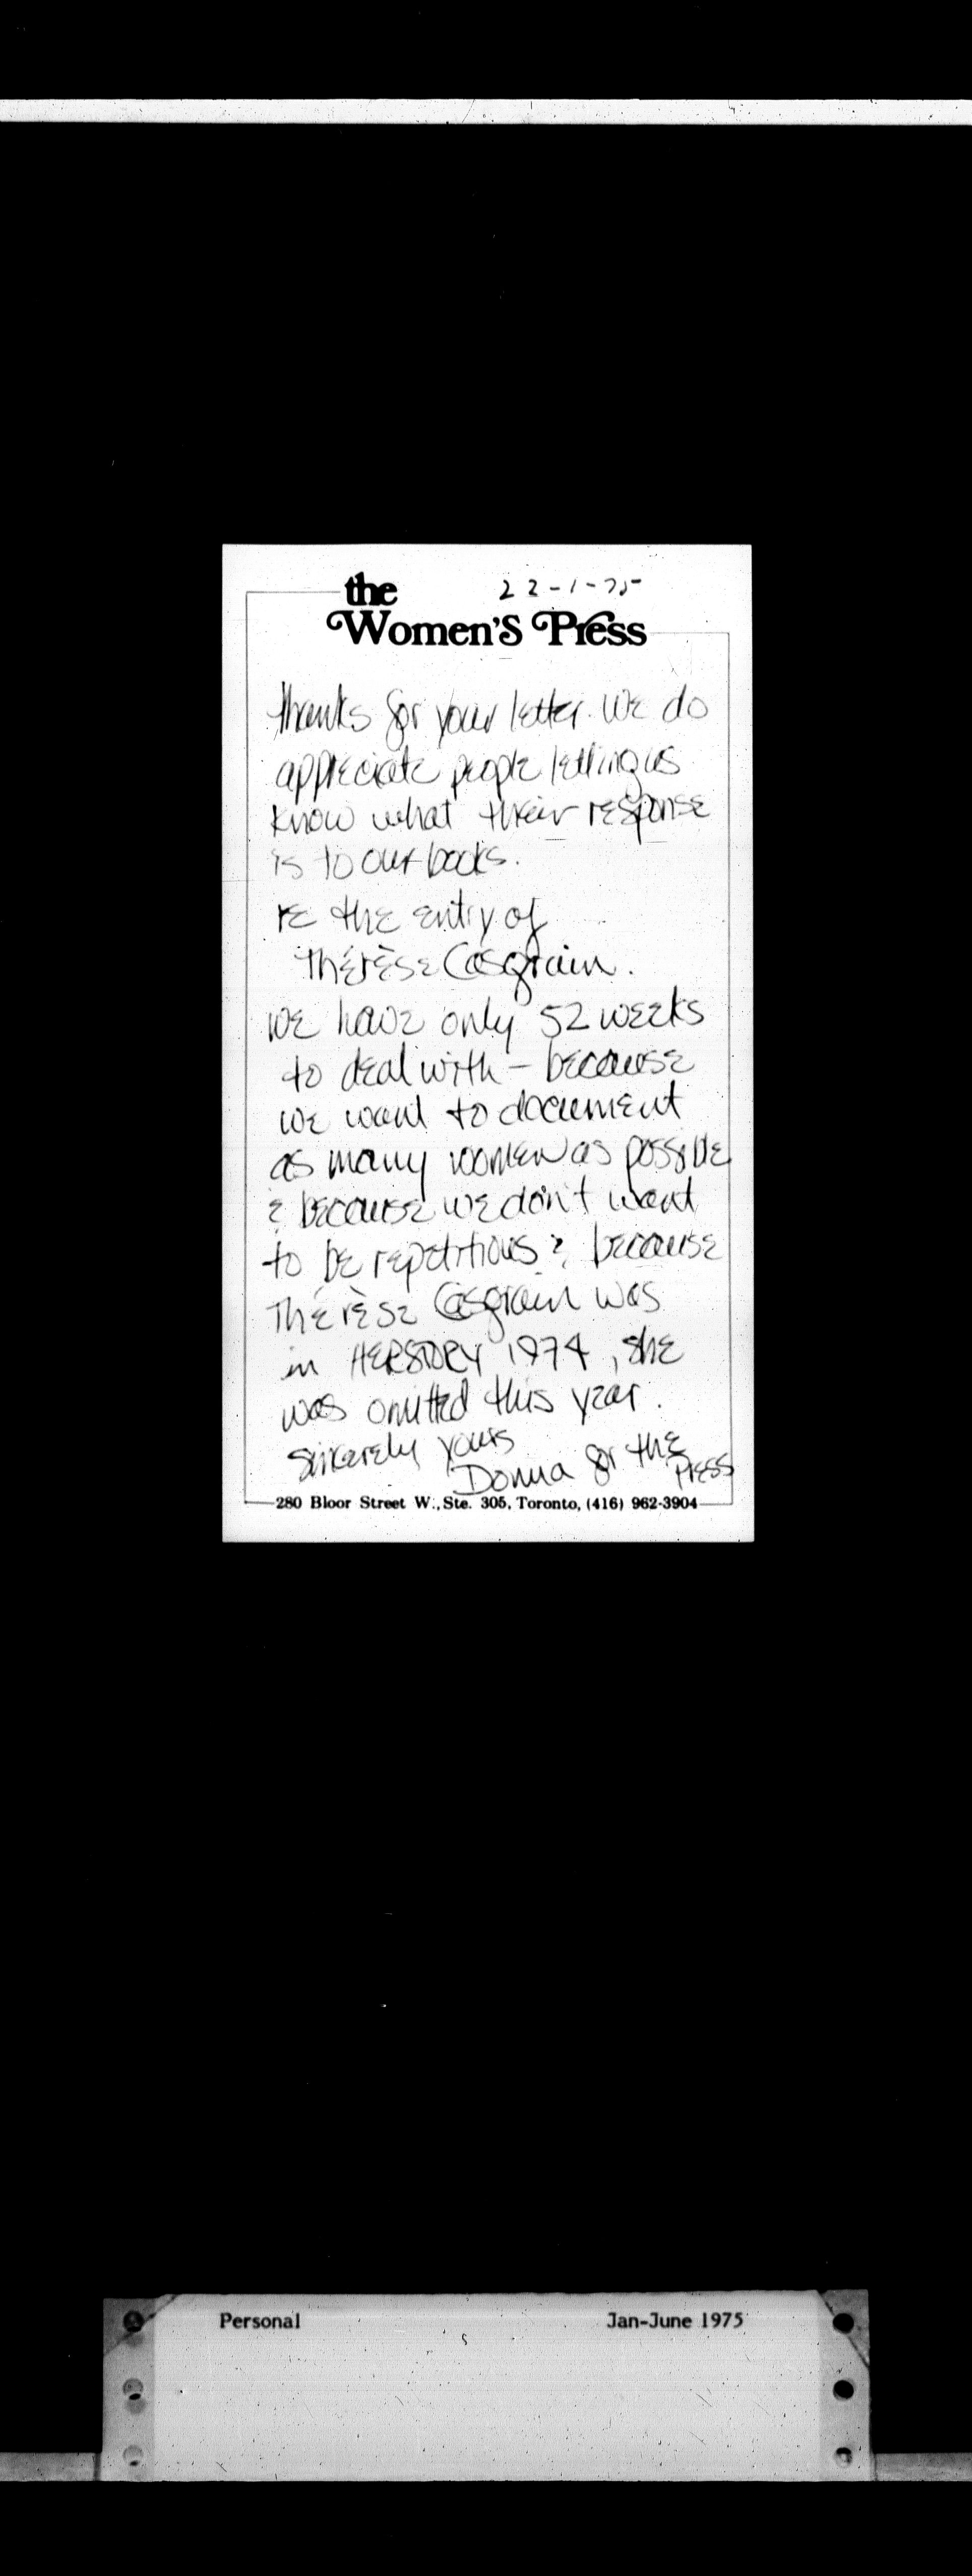 the
22-1-75
Women's Press
Thanks for your letter. We do
appreciate people letting us
know what their response
is to our books.
re the entry of
Thérèse Casgrain.
we have only 52 weeks
to deal with - because
we want to document
as many women as possible
& because we don't want
to be repetitious & because
Thérèse Casgrain was
in HERSTORY 1974, she
was omitted this year.
Sincerely yours
Donna for the
Press
280 Bloor Street W., Ste. 305, Toronto, (416) 962-3904
Personal Jan-June 1975